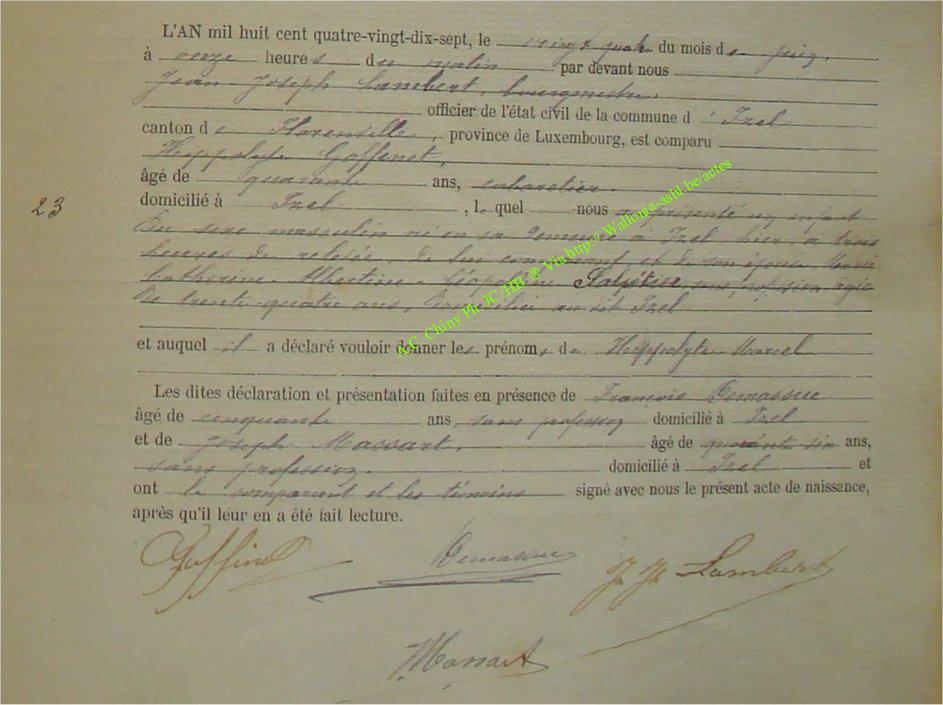 L'AN mil huit cent quatre-vingt-dix-sept, le vingt quatre du mois de juin,
à onze heures du matin par devant nous
Jean Joseph Lambert, bourgmestre,
officier de l'état civil de la commune d'Izel
canton de Florenville, province de Luxembourg, est comparu
Hippolyte Goffinet,
âgé de quarante ans, cabaretier
domicilié à Izel, lequel nous a présenté un enfant
23
du sexe masculin né en sa demeure à Izel hier, à trois
heures de relevée, de lui comparant et de son épouse Marie
Catherine Albertine Léopoldine sans profession agée
de trente-quatre ans, domiciliée au dit Izel
et auquel il a déclaré vouloir donner les prénoms de Hippolyte Marcel
Les dites déclaration et présentation faites en présence de François Demasure
âgé de cinquante ans, sans profession domicilié à Izel
et de Joseph Massart, âgé de quarante six ans,
sans profession. domicilié à Izel et
ont le comparant et les témoins signé avec nous le présent acte de naissance,
après qu'il leur en a été fait lecture.
Goffinet Demasure J. Jh Lambert
J. Massart
A.C. Chiny Ph. JC/HB @ Via http://Wallonia-asbl.be/actes